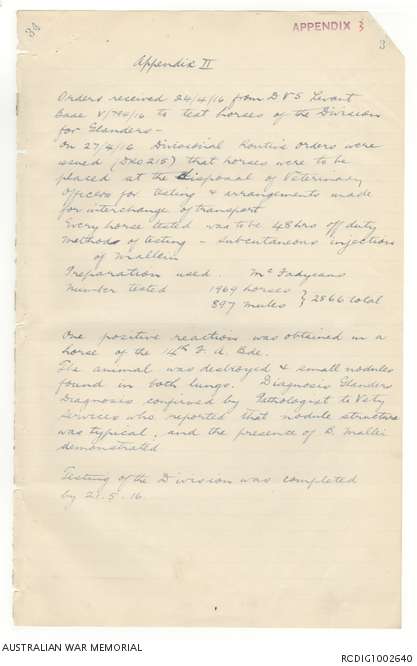 34
APPENDIX 3
3
Appendix II
Orders received 24/4/16 from D V S Levant
Base to test horses of the Division
for Glanders -
On 27/4/16 Divisional Routine orders were
issued (DRO 215) that horses were to be
placed at the disposal of Veterinary
Officers for testing & arrangements made
for interchange of transport
Every horse tested was to be 48 hrs off duty
Methods of testing - Subcutaneous injection
of mallein
Preparation used. Mc Fadyeans
Number tested 1969 horses } 2866 total
897 mules
One positive reaction was obtained in a
horse of the 14th F. A. Bde.
The animal was destroyed & small nodules
found in both lungs. Diagnosis Glanders
Diagnosis confirmed by Pathologist to Vety
Services who reported that nodule structure
was typical, and the presence of B. Mallei
demonstrated
Testing of the Division was completed
by 5. 16.
AUSTRALIAN WAR MEMORIAL
RCDIG1002640